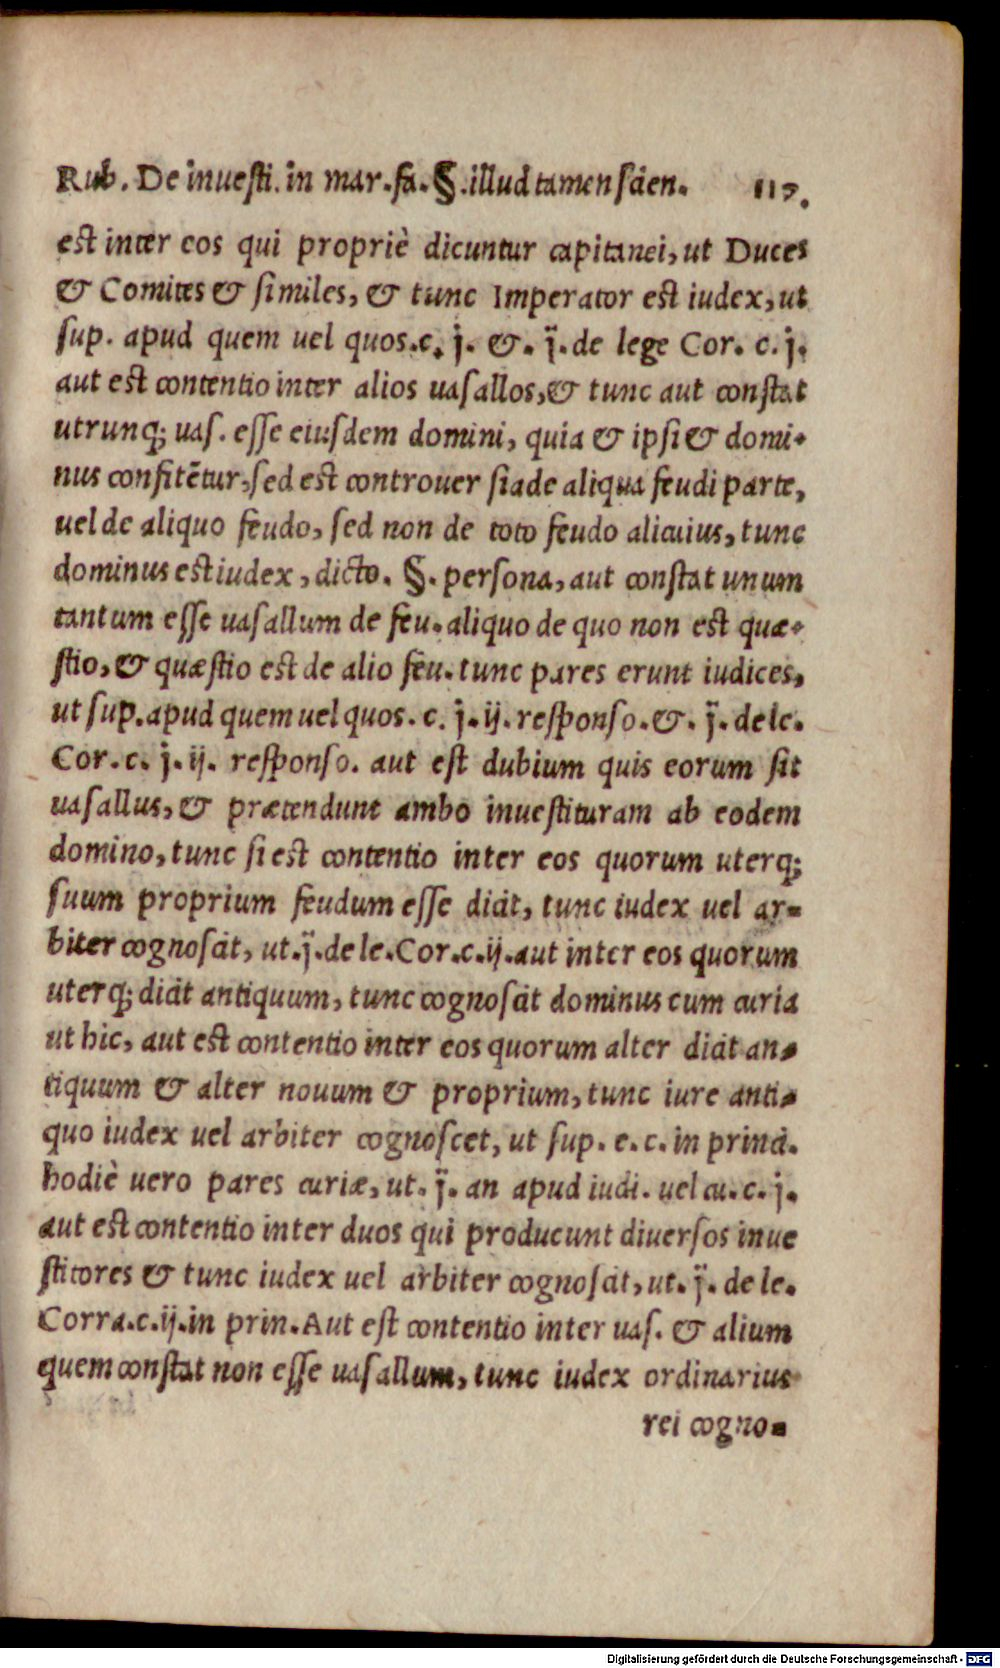 Rub. De inuesti. in mar. fa. §. illud tamen sciēn. 117.
est inter eos qui propriè dicuntur capitanei, ut Duces
& Comites & similes, & tunc Imperator est iudex, ut
sup. apud quem uel quos. c. j. &. j̈. de lege Cor. c. j.
aut est contentio inter alios uasallos, & tunc aut constat
utrunq; uas. esse eiusdem domini, quia & ipsi & domi-
nus confitētur, sed est controuer siade aliqua feudi parte,
uel de aliquo feudo, sed non de toto feudo alicuius, tunc
dominus est iudex, dicto. §. persona, aut constat unum
tantum esse uasallum de feu. aliquo de quo non est quæ-
stio, & quæstio est de alio feu. tunc pares erunt iudices,
ut sup. apud quem uel quos. c. j. ij. responso. &. j̈. de le.
Cor. c. j. ij. responso. aut est dubium quis eorum sit
uasallus, & prætendunt ambo inuestituram ab eodem
domino, tunc si est contentio inter eos quorum uterq;
suum proprium feudum esse dicit, tunc iudex uel ar-
biter cognoscit, ut. j̈. de le. Cor. c. ij. aut inter eos quorum
uterq; dicit antiquum, tunc cognoscit dominus cum curia
ut hic, aut est contentio inter eos quorum alter dicit an-
tiquum & alter nouum & proprium, tunc iure anti-
quo iudex uel arbiter cognoscet, ut sup. e. c. in princi.
hodiè uero pares curiæ, ut. j̈. an apud iudi. uel cu. c. j.
aut est contentio inter duos qui producunt diuersos inue
stitores & tunc iudex uel arbiter cognoscit, ut. j̈. de le.
Corra. c. ij. in prin. Aut est contentio inter uas. & alium
quem constat non esse uasallum, tunc iudex ordinarius
rei cogno-
Digitalisierung gefördert durch die Deutsche Forschungsgemeinschaft - DFG